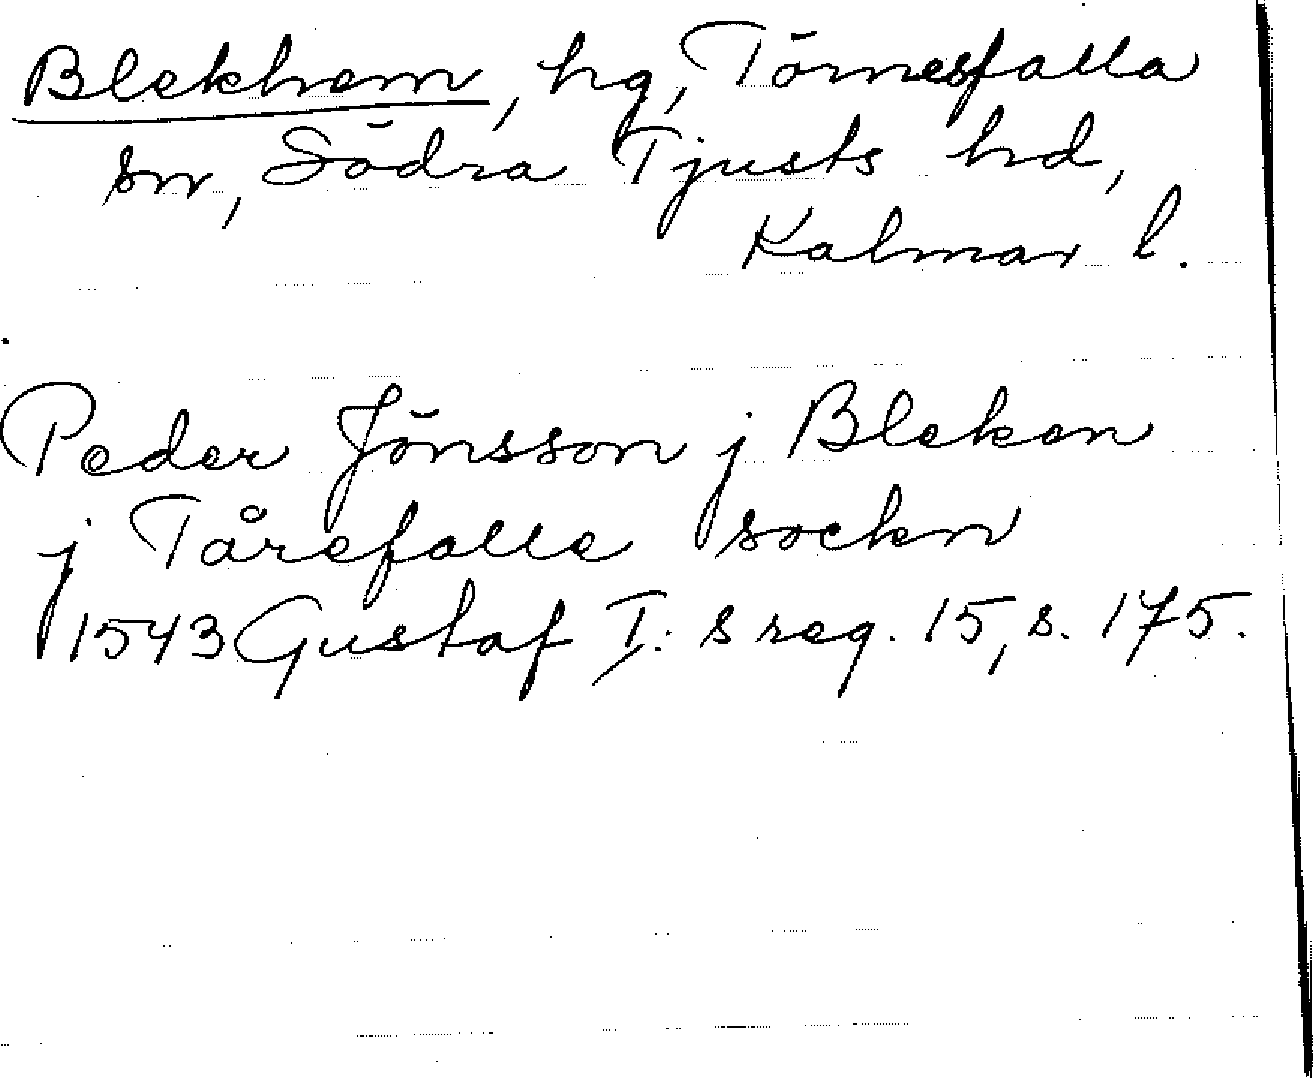 Blekhem, hg, Törnesfalla
sn, Södra Tjusts hd,
Kalmar l.
Peder Jönsson j Bleken
j Tårefalle sockn
1543 Gustaf I:s reg. 15, s. 175.